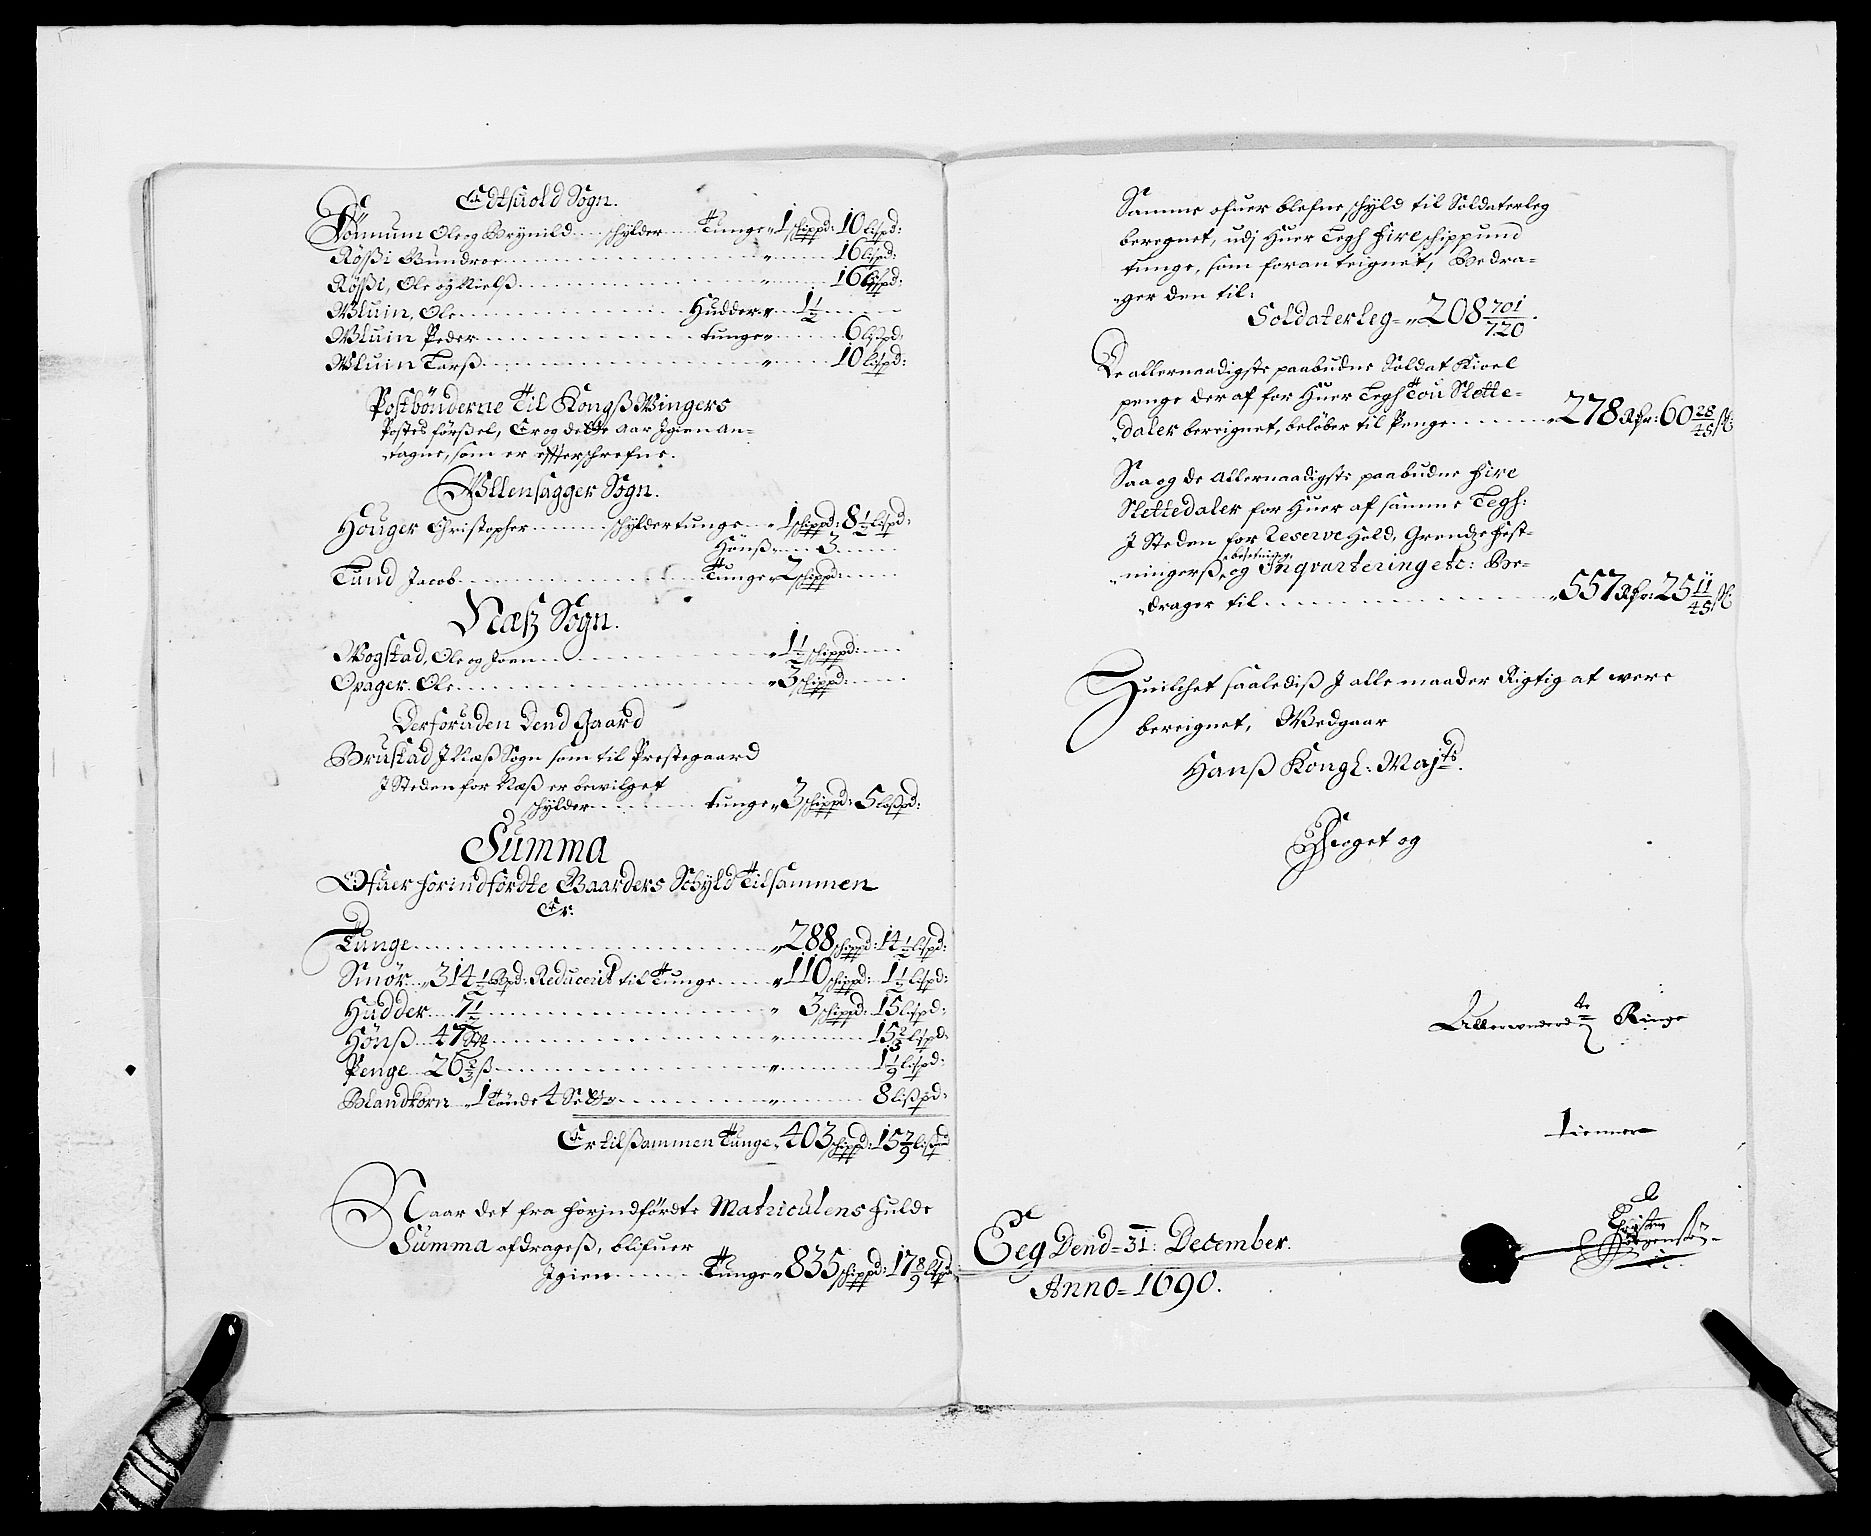 Edtsuold Sogn.
Tönnum Ole og Brynild schylder Tunge 1 schippd: 10 lispd:
Rößi Gundroe " 16 lispd:
Rößi, Ole og Nielß " 16 lispd:
Wluin, Ole Hudder 1 1/2
Wluin Peder tunge 6 lispd:
Wluin Larß " 10 lispd:
Postbönderne Til Kongß Wingers
Postes förßel, Er og dette Aar Igien an-
tagne, som er effterschrefne.
Wllensagger Sogn.
Houger Christopher schylder tunge 1 schippd: 8 1/2 lispd:
Hönß 3
Lund Jacob Tunge 2 schippd:
Næß Sogn.
Wogstad, Ole og Joen 1 1/2 schippd:
Opager. Ole 3 schippd:
Derforuden Dend Gaard
Brustad J Næß Sogn som til Prestegaard
J Steden for Næß er bewilget
schylder tunge 3 schippd: 5 lißpd:
Summa
Ofuer forindfördte Gaarders Schyld Tilsammen
Er:
Tunge 288 schippd: 14 1/2 lispd:
Smör 314 1/2 Bpd: Reducerit til Tunge 110 schippd: 1 1/2 lispd:
Hudder 7 1/2 3 schippd: 15 lispd:
Hönß 47 St " 15 2/3 lispd:
Penge 26 2/3 ß " 1 1/9 lispd:
Blandkorn 1 tönde 4 Setter " 8 lißpd:
Er tilßammen Tunge 403 schippd: 15 7/9 lißpd
Naar det fra forjndfördte Matriculens fulde
Summa afdrageß, blifuer
Igien Tunge 835 schippd: 17 8/9 lispd
Samme ofuer blefne schyld til Soldaterleg
beregnet, udj Huer Legh fire schippund
tunge, som foran teignet, Bedra-
ger den til:
Soldaterleg 208 701/720.
De allernaadigste paabudne Soldat Kioel
penge der af for Huer Legh Tou Slette-
daler bereignet, beløber til Penge 278 Rdr: 60 28/45 ß
Saa og de Allernaadigste paabudne fire
Slettedaler for Huer af samme Legh:
J Steden for Reserve Hold, Grendze Fest-
ningerß besetninger, og Inqvartering etc: Be-
drager til 557 Rdr: 25 11/45 ß
Huilchet saalediß J alle maader Rigtig at were
bereignet, Wedgaar
Hanß Kongl: Majts.
Foget og
Allerunderd te Ringe
tienner
Eeg Dend 31: December.
Anno 1690.